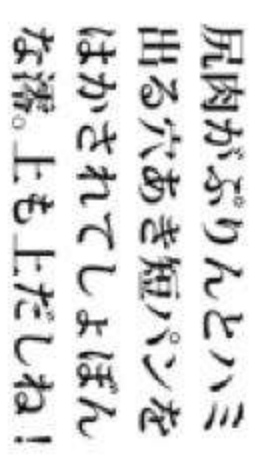 尻肉がぷりんとハミ
出る穴あき短パンを
はかされてしょぼん
な澪。上も上だしね!